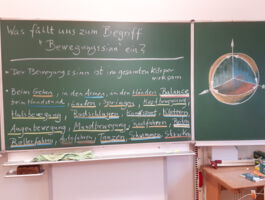 Was fällt uns zum Begriff
"Bewegungssinn" ein?
"Der Bewegungssinn ist im gesamten Körper
wirksam
Beim Gehen, in den Armen, in den Händen, Balance
beim Handstand, Springen, Kopfbewegung
Halsbewegung, Radschlagen, Handstand, Klettern
Augenbewegung, Mundbewegung, radfahren
Rollerfahren, Autofahren, Tanzen, Schwimmen